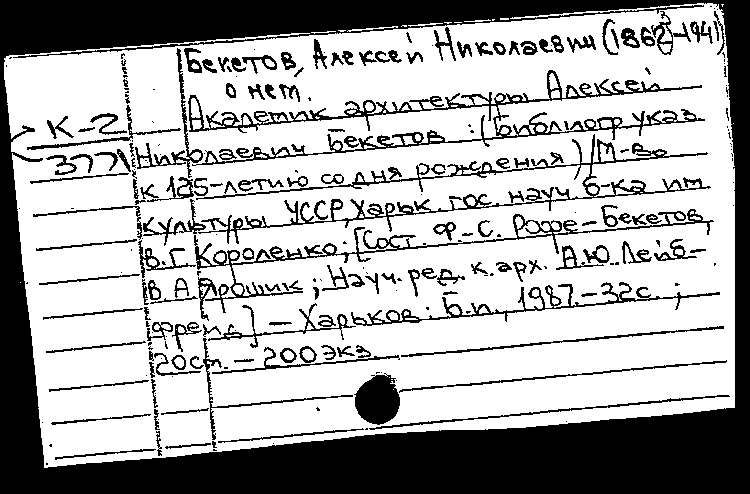 Бекетов, Алексей Николаевич (1862-1941)
о нем.
Академик архитектуры Алексей
К-2
Николаевич Бекетов : (Библиогр. указ.
3771
к 125-летию со дня рождения) / М-во
культуры УССР, Харьк. гос. науч. б-ка им.
В. Г. Короленко; [Сост. Ф-С. Рофе-Бекетов,
В. А. Ярошик; Науч. ред. к. арх. А. Ю. Лейб-
фрейд] – Харьков: Б.и., 1987. – 32с. ;
20см. – 200 экз.